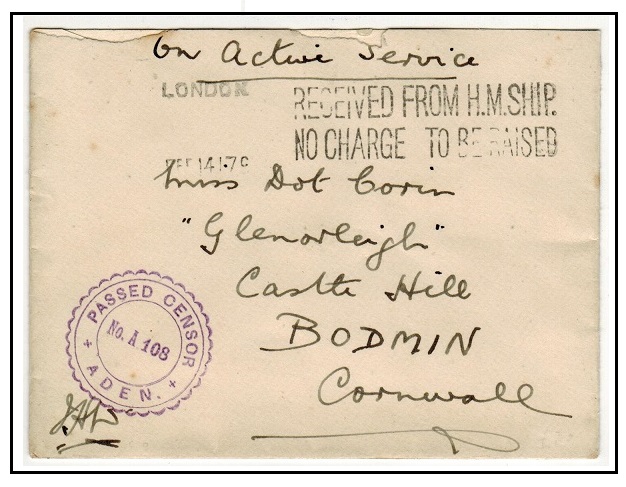 On Active Service
LONDON
RECEIVED FROM H.M.SHIP.
NO CHARGE TO BE RAISED
14 17
Miss Dot Corin
"Glenorleigh"
Castle Hill
BODMIN
Cornwall
PASSED CENSOR
No. A 108
ADEN.